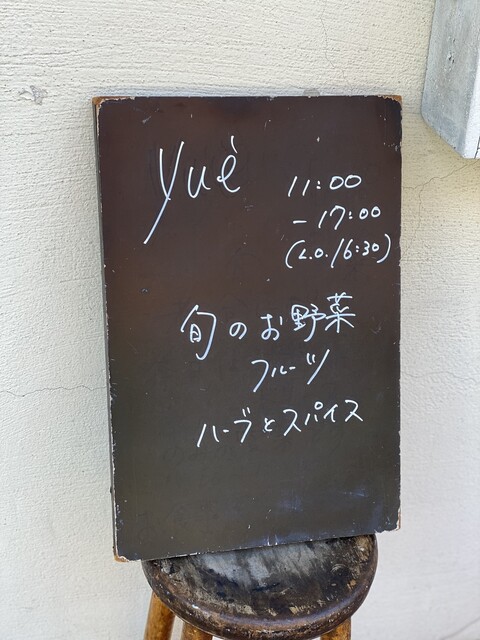 yuè
11:00
- 17:00
(L.O. 16:30)
旬のお野菜
フルーツ
ハーブとスパイス